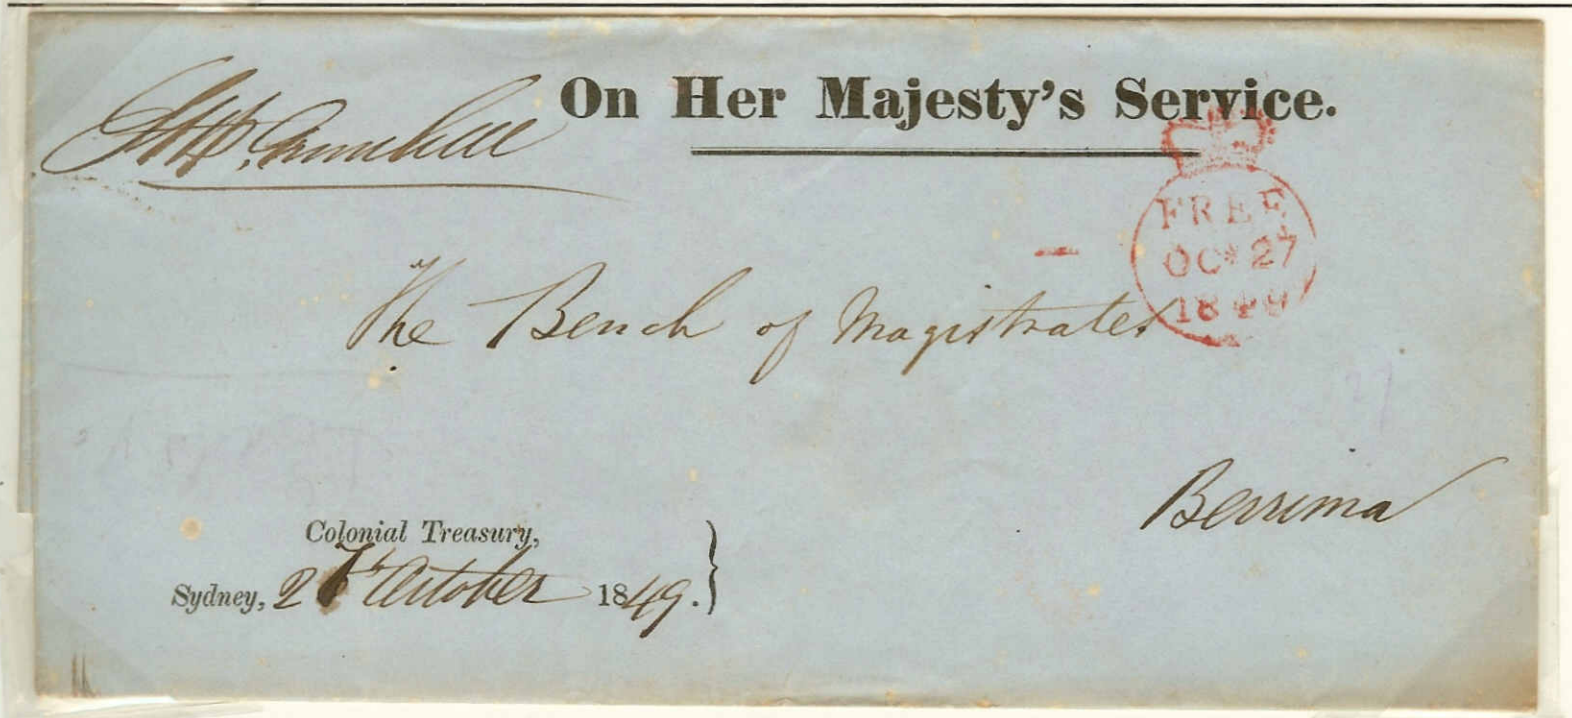 On Her Majesty's Service.
FREE
OC* 27
1849
The Bench of Magistrates
Berrima
Colonial Treasury,
Sydney, October 1849.